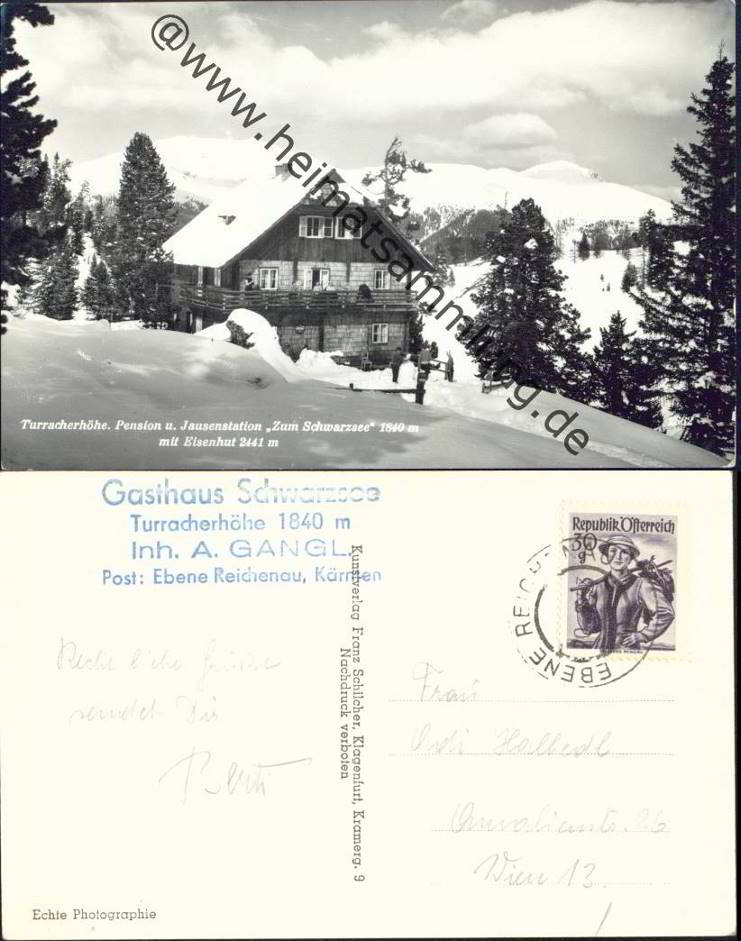 @www.heimatsammlung.de
Turracherhöhe. Pension u. Jausenstation „Zum Schwarzsee" 1840 m
mit Eisenhut 2441 m
Gasthaus Schwarzsee
Turracherhöhe 1840 m
Inh. A. GANGL.
Post: Ebene Reichenau, Kärnten
Republik Österreich
30
g
EBENE REICHENAU
Kunstverlag Franz Schilcher, Klagenfurt, Kramerg. 9
Nachdruck verboten
Recht liebe Grüsse
sendet Dir
Berti
Frau
Halbedl
26
Wien 13.
Echte Photographie